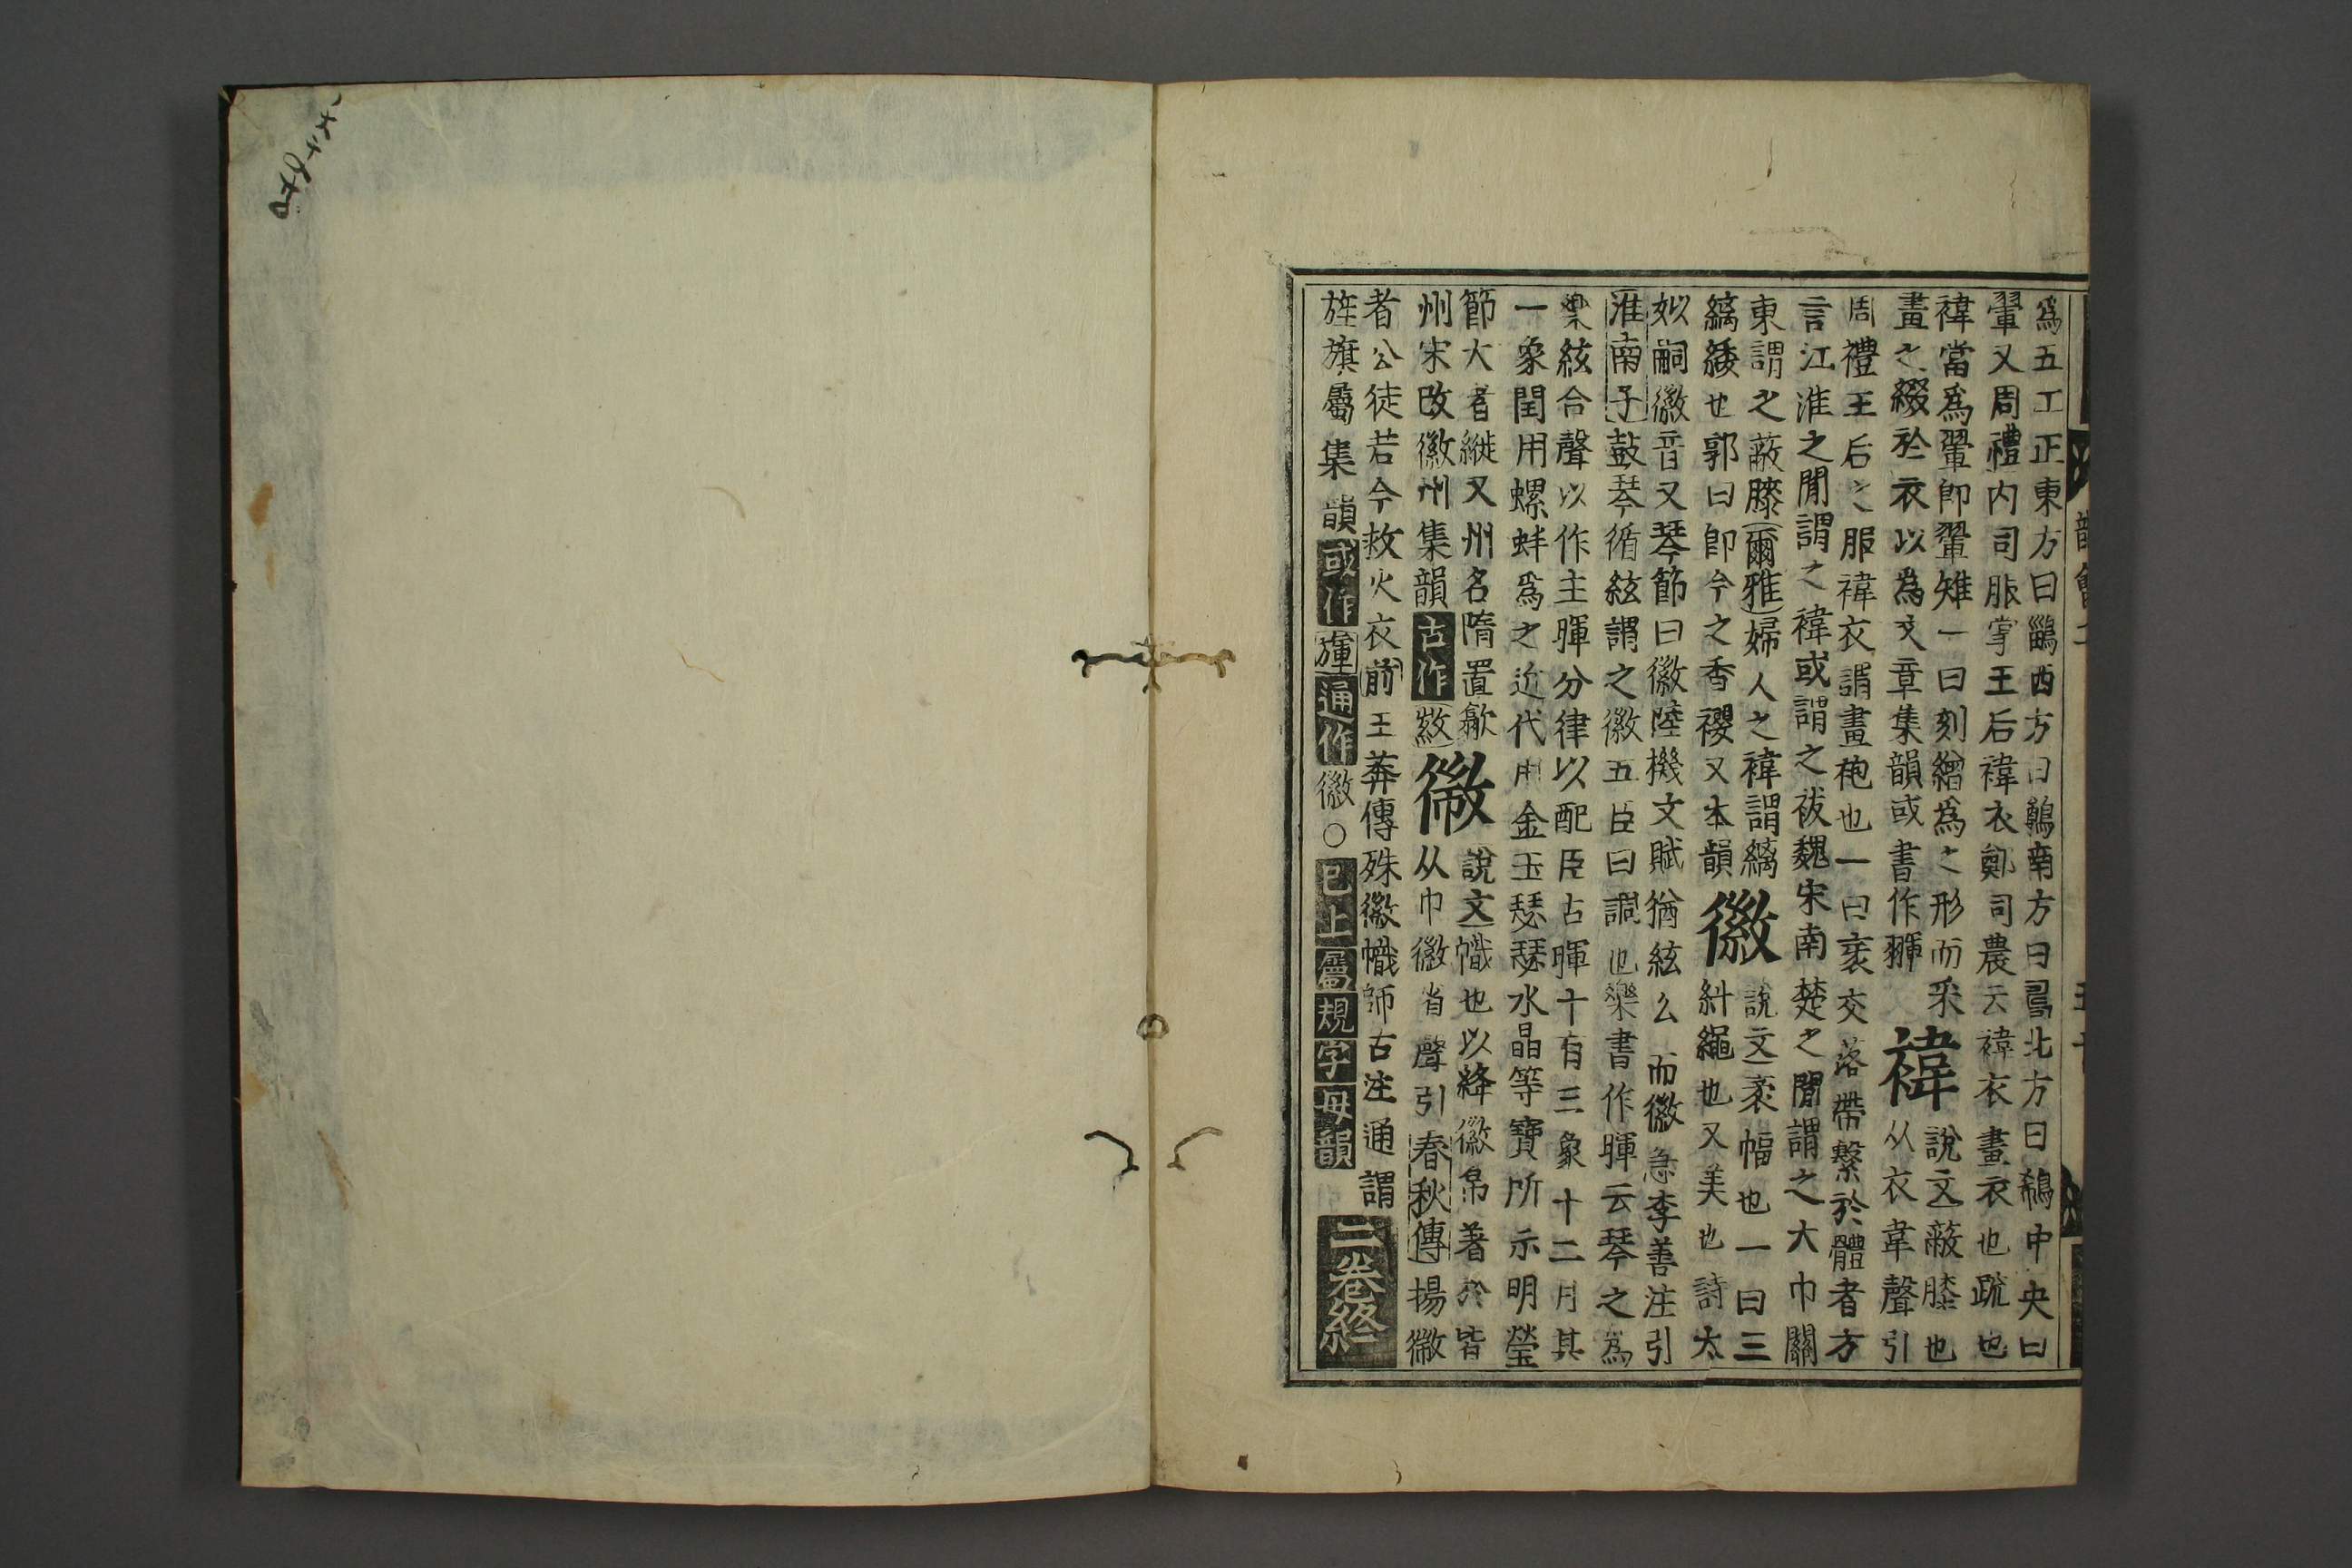 爲五工正東方曰鶅西方曰鷷南方曰𠷎北方曰鵗中央曰
翬又周禮內司服掌王后褘衣鄭司農云褘衣畫衣也䟽也
褘當爲翬卽翬雉一曰刻繒爲之形而采
畫之綴於衣以為文章集韻或書作翬
褘
說文蔽膝也
从衣韋聲引
周禮王后之服褘衣謂畫袍也一曰袤交落帶繫於體者方
言江淮之閒謂之褘或謂之祓魏宋南楚之閒謂之大巾關
東謂之蔽膝爾雅婦人之褘謂縭
縭緌也郭曰卽今之香纓又本韻
徽
說文袤幅也一曰三
糾繩也又美也詩太
姒嗣徽音又琴節曰徽陸機文賦猶絃么而徽急李善注引
淮南子鼓琴循絃謂之徽五臣曰調也樂書作暉云琴之爲
樂絃合聲以作主暉分律以配臣古暉十有三象十二月其
一象閏用螺蚌爲之近代用金玉瑟瑟水晶等寶所示明瑩
節大者縰又州名隋置歙
州宋改徽州集韻古作𢾰
幑
說文幟也以絳徽帛著於皆
从巾徽省聲引春秋傳揚幑
者公徒若今救火衣前王莽傳殊徽幟師古注通謂
旌旗屬集韻或作㫎通作徽○已上屬規字母韻
二卷終